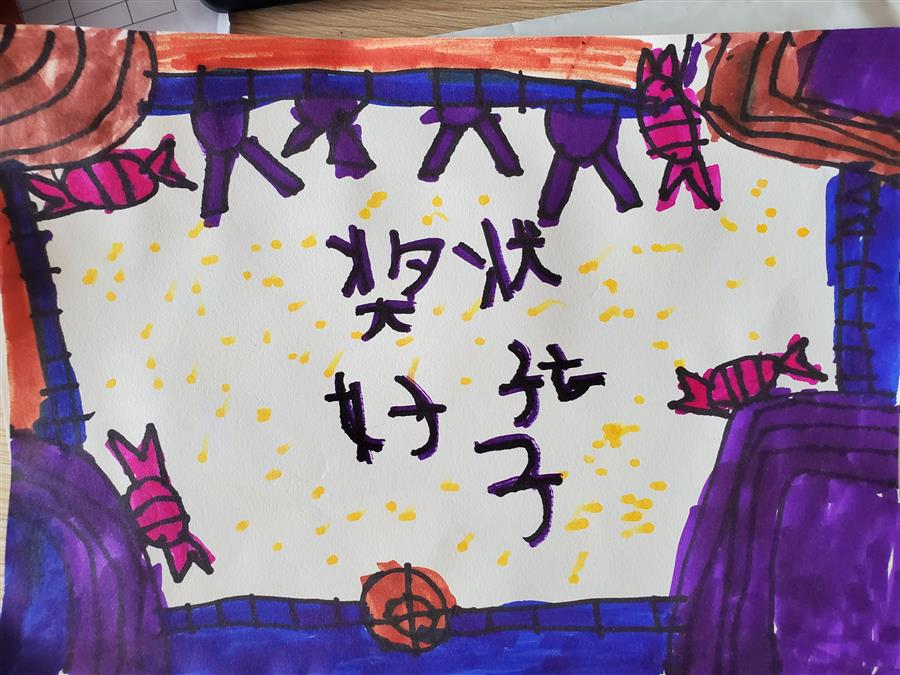 奖状
好孩
子